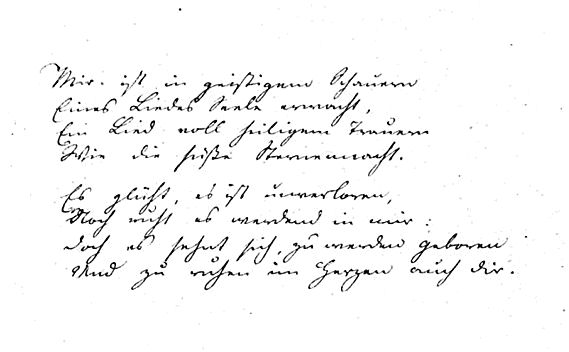 Mir ist in geistigem Schauern
Eines Liedes Seele erwacht,
Ein Lied voll heiligem Trauern
Wie die süße Sternennacht.
Es glüht, es ist unverloren,
Noch ruht es werdend in mir:
doch es sehnt sich, zu werden geboren
Und zu ruhen im Herzen auch dir.